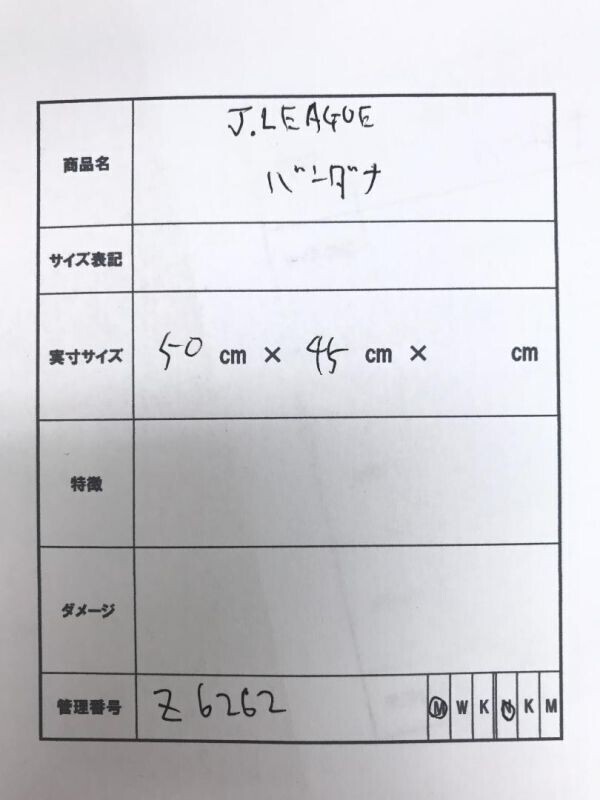 商品名
J.LEAGUE
バンダナ
サイズ表記
実寸サイズ 50 cm × 45 cm × cm
特徴
ダメージ
管理番号 Z6262 M W K N K M